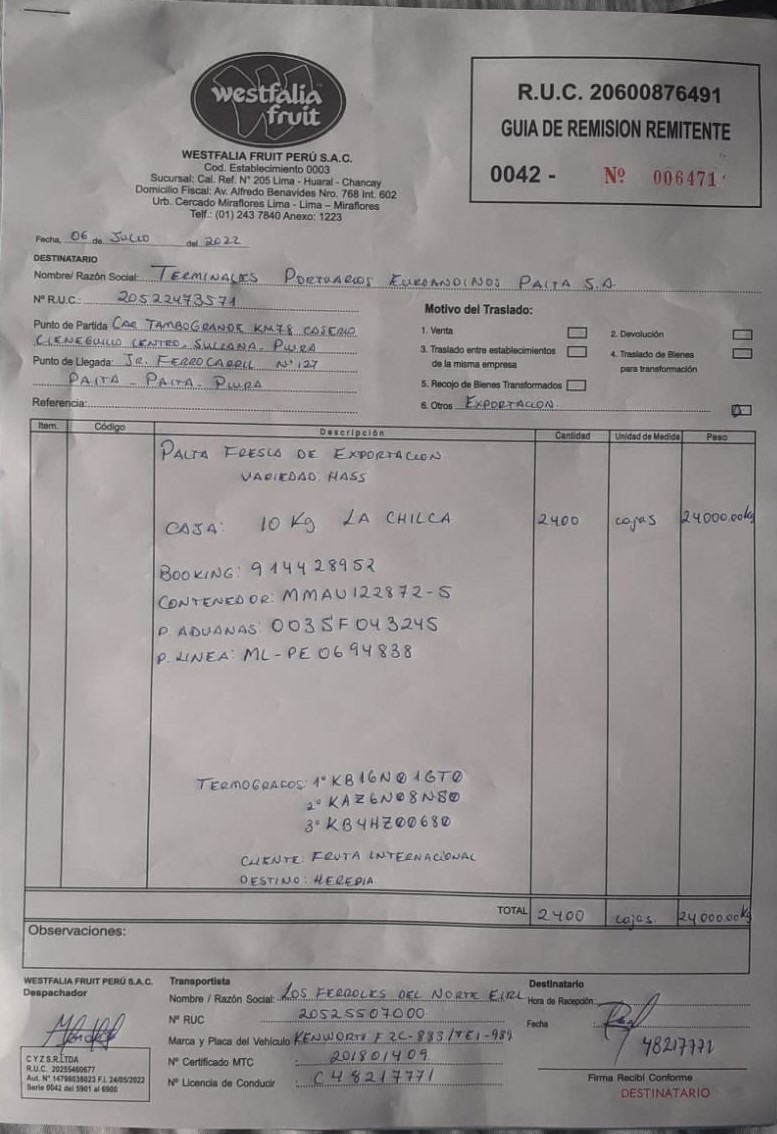 westfalia
fruit
WESTFALIA FRUIT PERÚ S.A.C.
Cod. Establecimiento 0003
Sucursal: Cal. Ref. N° 205 Lima - Huaral - Chancay
Domicilio Fiscal: Av. Alfredo Benavides Nro. 768 Int. 602
Urb. Cercado Miraflores Lima - Lima – Miraflores
Telf.: (01) 243 7840 Anexo: 1223
R.U.C. 20600876491
GUIA DE REMISION REMITENTE
0042 - Nº 006471
Fecha, 06 de JULIO del 2022
DESTINATARIO
Nombre/ Razón Social: TERMINALES PORTUARIOS EUROANDINOS PAITA S.A.
Nº R.U.C.: 20522473571
Punto de Partida CAR TAMBOGRANDE KM78 CASERIO
CIENEGUILLO CENTRO - SULLANA - PIURA
Punto de Llegada: JR. FERROCARRIL Nº 127
PAITA - PAITA - PIURA
Referencia:
Motivo del Traslado:
1. Venta
2. Devolución
3. Traslado entre establecimientos
de la misma empresa
4. Traslado de Bienes
para transformación
5. Recojo de Bienes Transformados
6. Otros EXPORTACION.
Item. Código Descripción Cantidad Unidad de Medida Peso
PALTA FRESCA DE EXPORTACION
VARIEDAD: HASS
CAJA: 10 Kg LA CHILCA 2400 cajas 24000.00kg
BOOKING: 914428952
CONTENEDOR: MMAU122872-5
P. ADUANAS: 0035F043245
P. LINEA: ML-PE0694838
TERMOGRAFOS: 1° KB16N01GT0
2° KAZ6N08N80
3° KB4HZ00680
CLIENTE: FRUTA INTERNACIONAL
DESTINO: HEREDIA
TOTAL 2400 cajas. 24000.00kg
Observaciones:
WESTFALIA FRUIT PERÚ S.A.C.
Despachador
C Y Z S.R.LTDA
R.U.C. 20255460677
Aut. N° 14798038023 F.I. 24/05/2022
Serie 0042 del 5901 al 6900
Transportista
Nombre / Razón Social: LOS FERROLES DEL NORTE EIRL
Nº RUC : 20525507000
Marca y Placa del Vehículo KENWORTH F2C-883/TEI-989
Nº Certificado MTC : 201801409
Nº Licencia de Conducir : C48217771
Destinatario
Hora de Recepción:
Fecha
48217771
Firma Recibí Conforme
DESTINATARIO